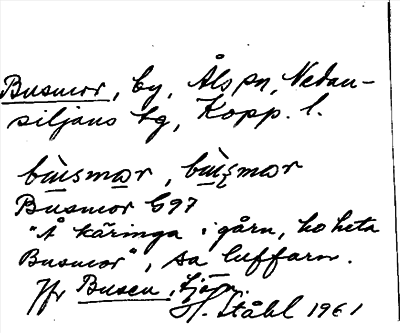 Busmor, by, Åls sn, Nedan-
siljans tg, Kopp. l.
bùsmar, bùsmar
Busmor G97
"Å käringa i gårn, ho heta
Busmor", sa luffarn.
Jfr Busen, tjärn.
H. Ståhl 1961